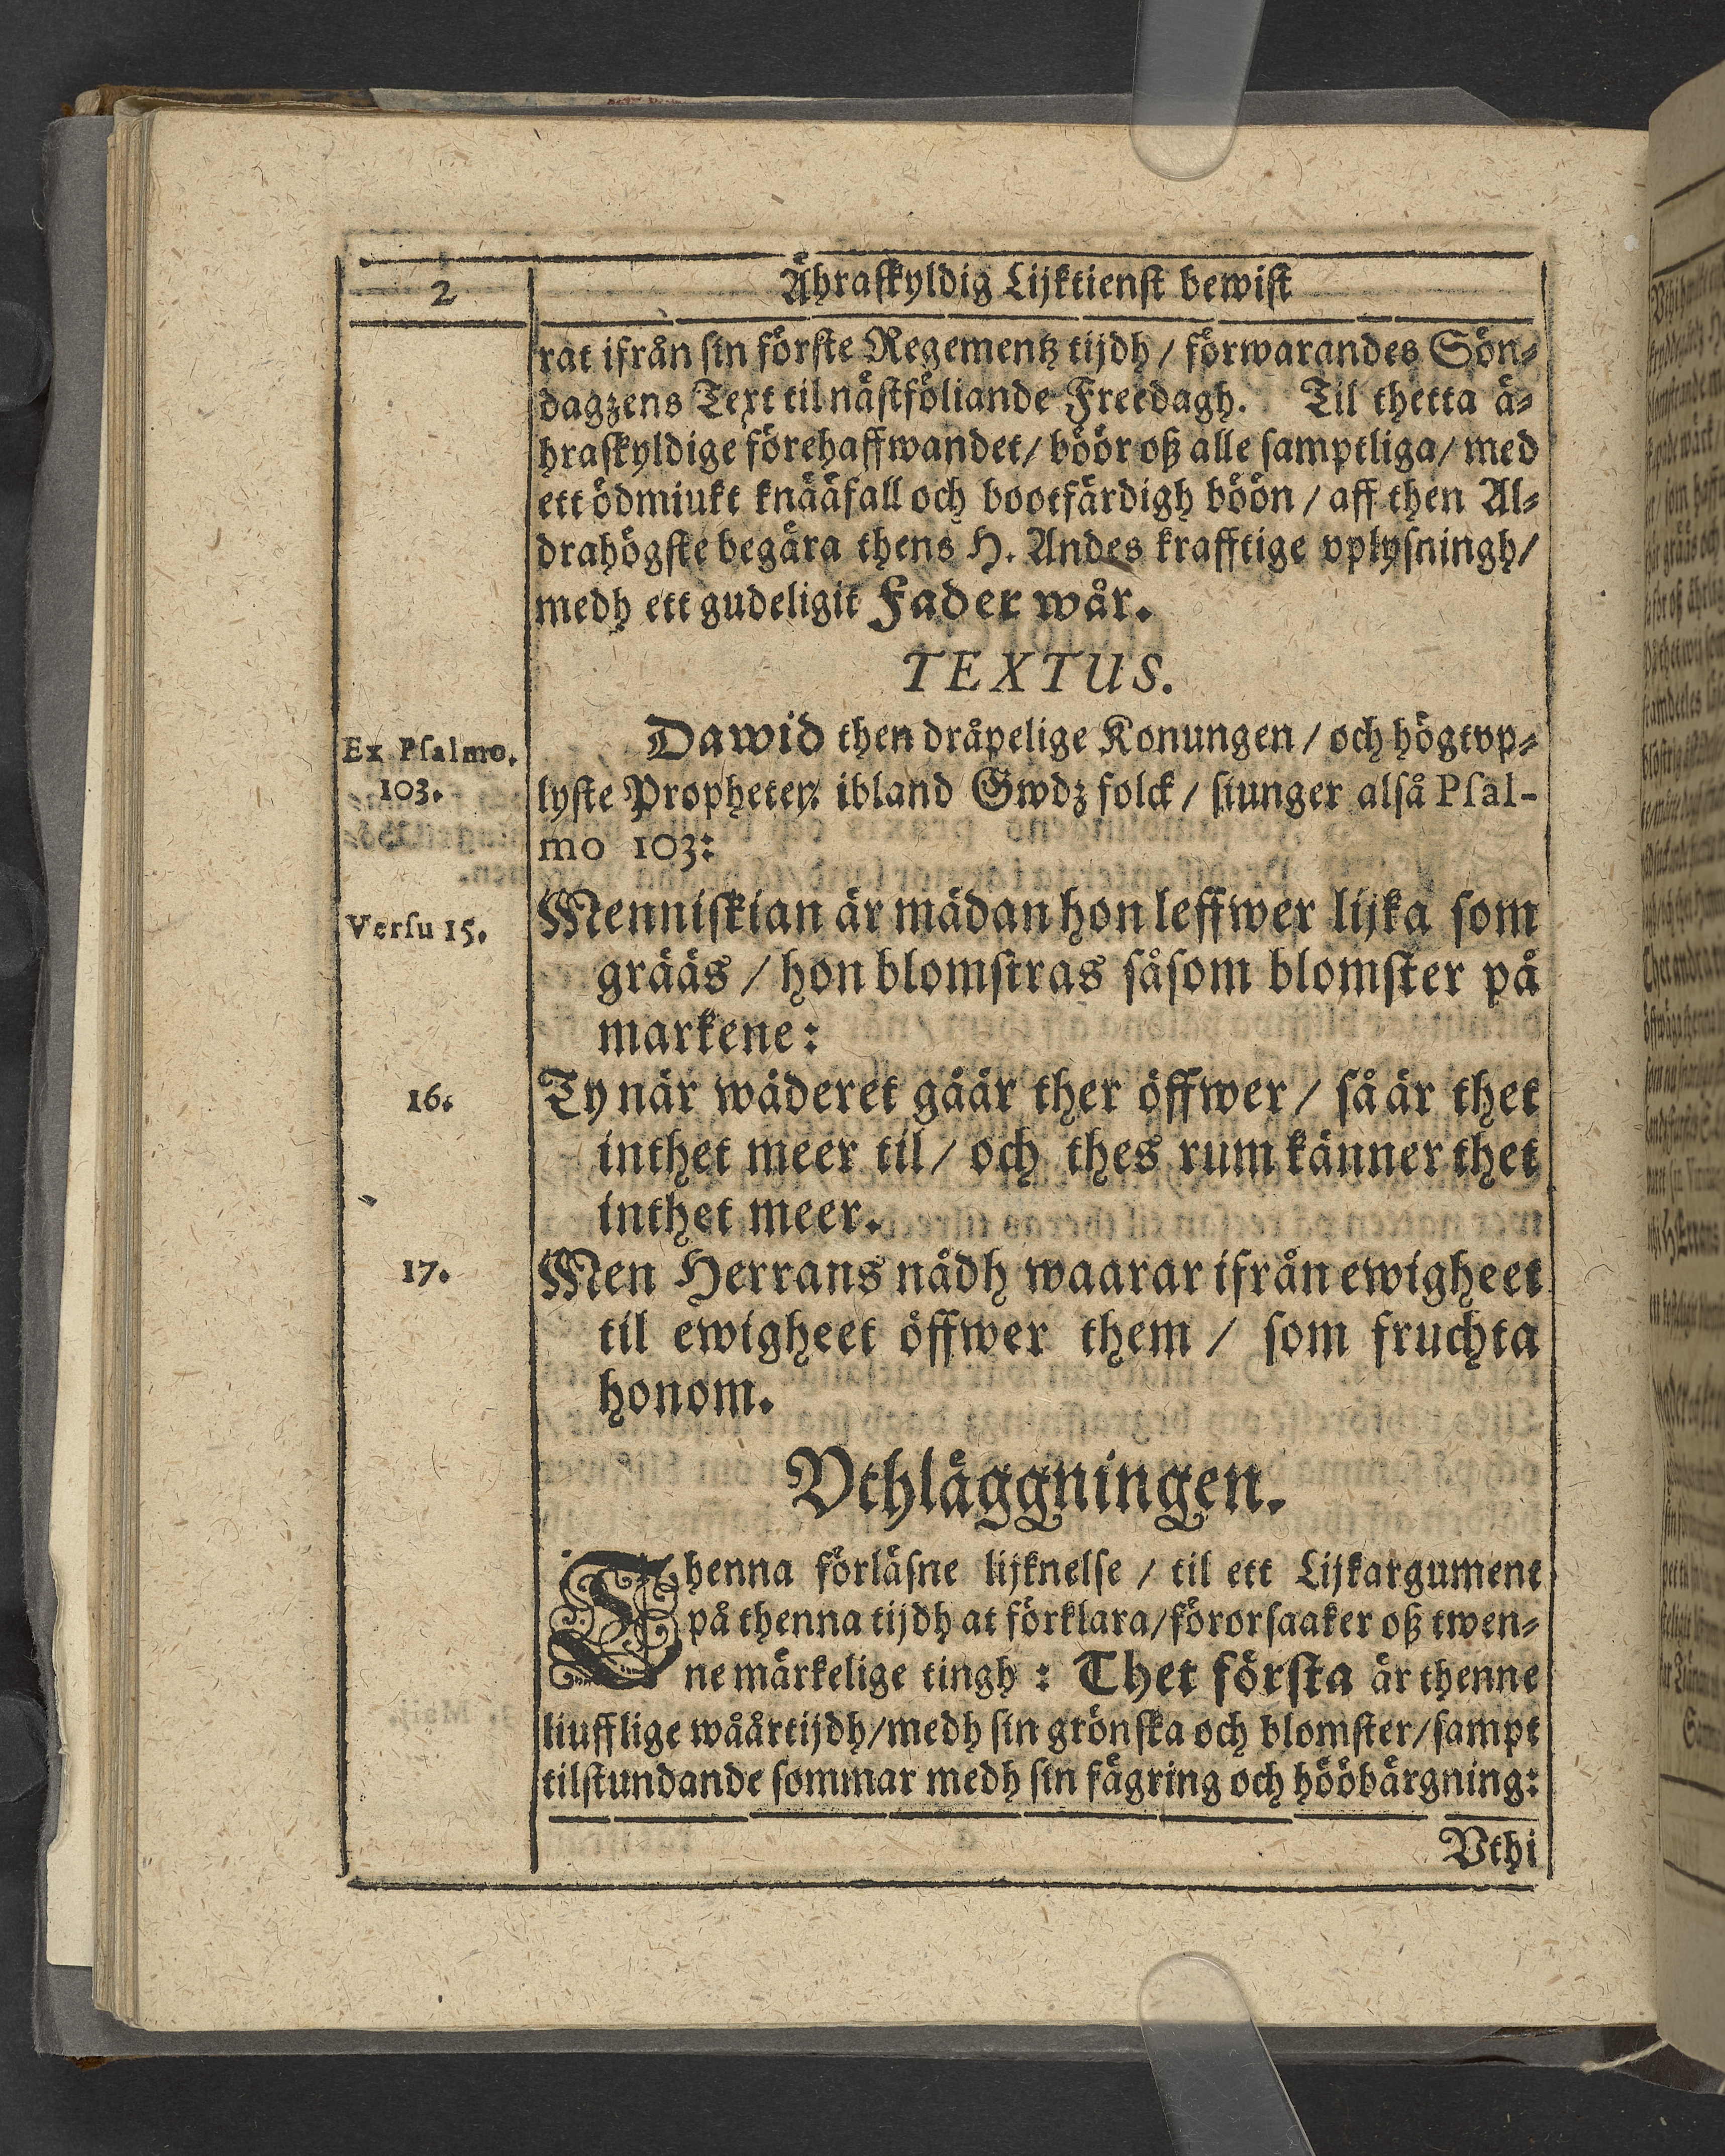 2
Ähraskyldig Lijktienst bewist
rat ifrån sin förste Regementz tijdh / förwarandes Sön-
dagzens Text til nästföliande Freedagh. Til thetta ä-
hraskyldige förehaffwandet / böör oß alle samptliga / med
ett ödmiukt knääfall och bootfärdigh böön / aff then Al-
drahögste begära thens H. Andes krafftige vplysningh /
medh ett gudeligit Fader wår.
TEXTUS.
Ex Psalmo.
103.
Dawid then dråpelige Konungen / och högtvp-
lyste Propheten ibland Gwdz folck / siunger alså Psal-
mo 103:
Versu 15.
Menniskian är mädan hon leffwer lijka som
grääs / hon blomstras såsom blomster på
markene:
16.
Ty när wäderet gåår ther öffwer / så är thet
inthet meer til / och thes rum känner thet
inthet meer.
17.
Men Herrans nådh waarar ifrån ewigheet
til ewigheet öffwer them / som fruchta
honom.
Vthläggningen.
Thenna förläsne lijknelse / til ett Lijkargument
på thenna tijdh at förklara / förorsaaker oß twen-
ne märkelige tingh: Thet första är thenne
liufflige wåårtijdh / medh sin grönska och blomster / sampt
tilstundande sommar medh sin fägring och hööbärgning:
Vthi